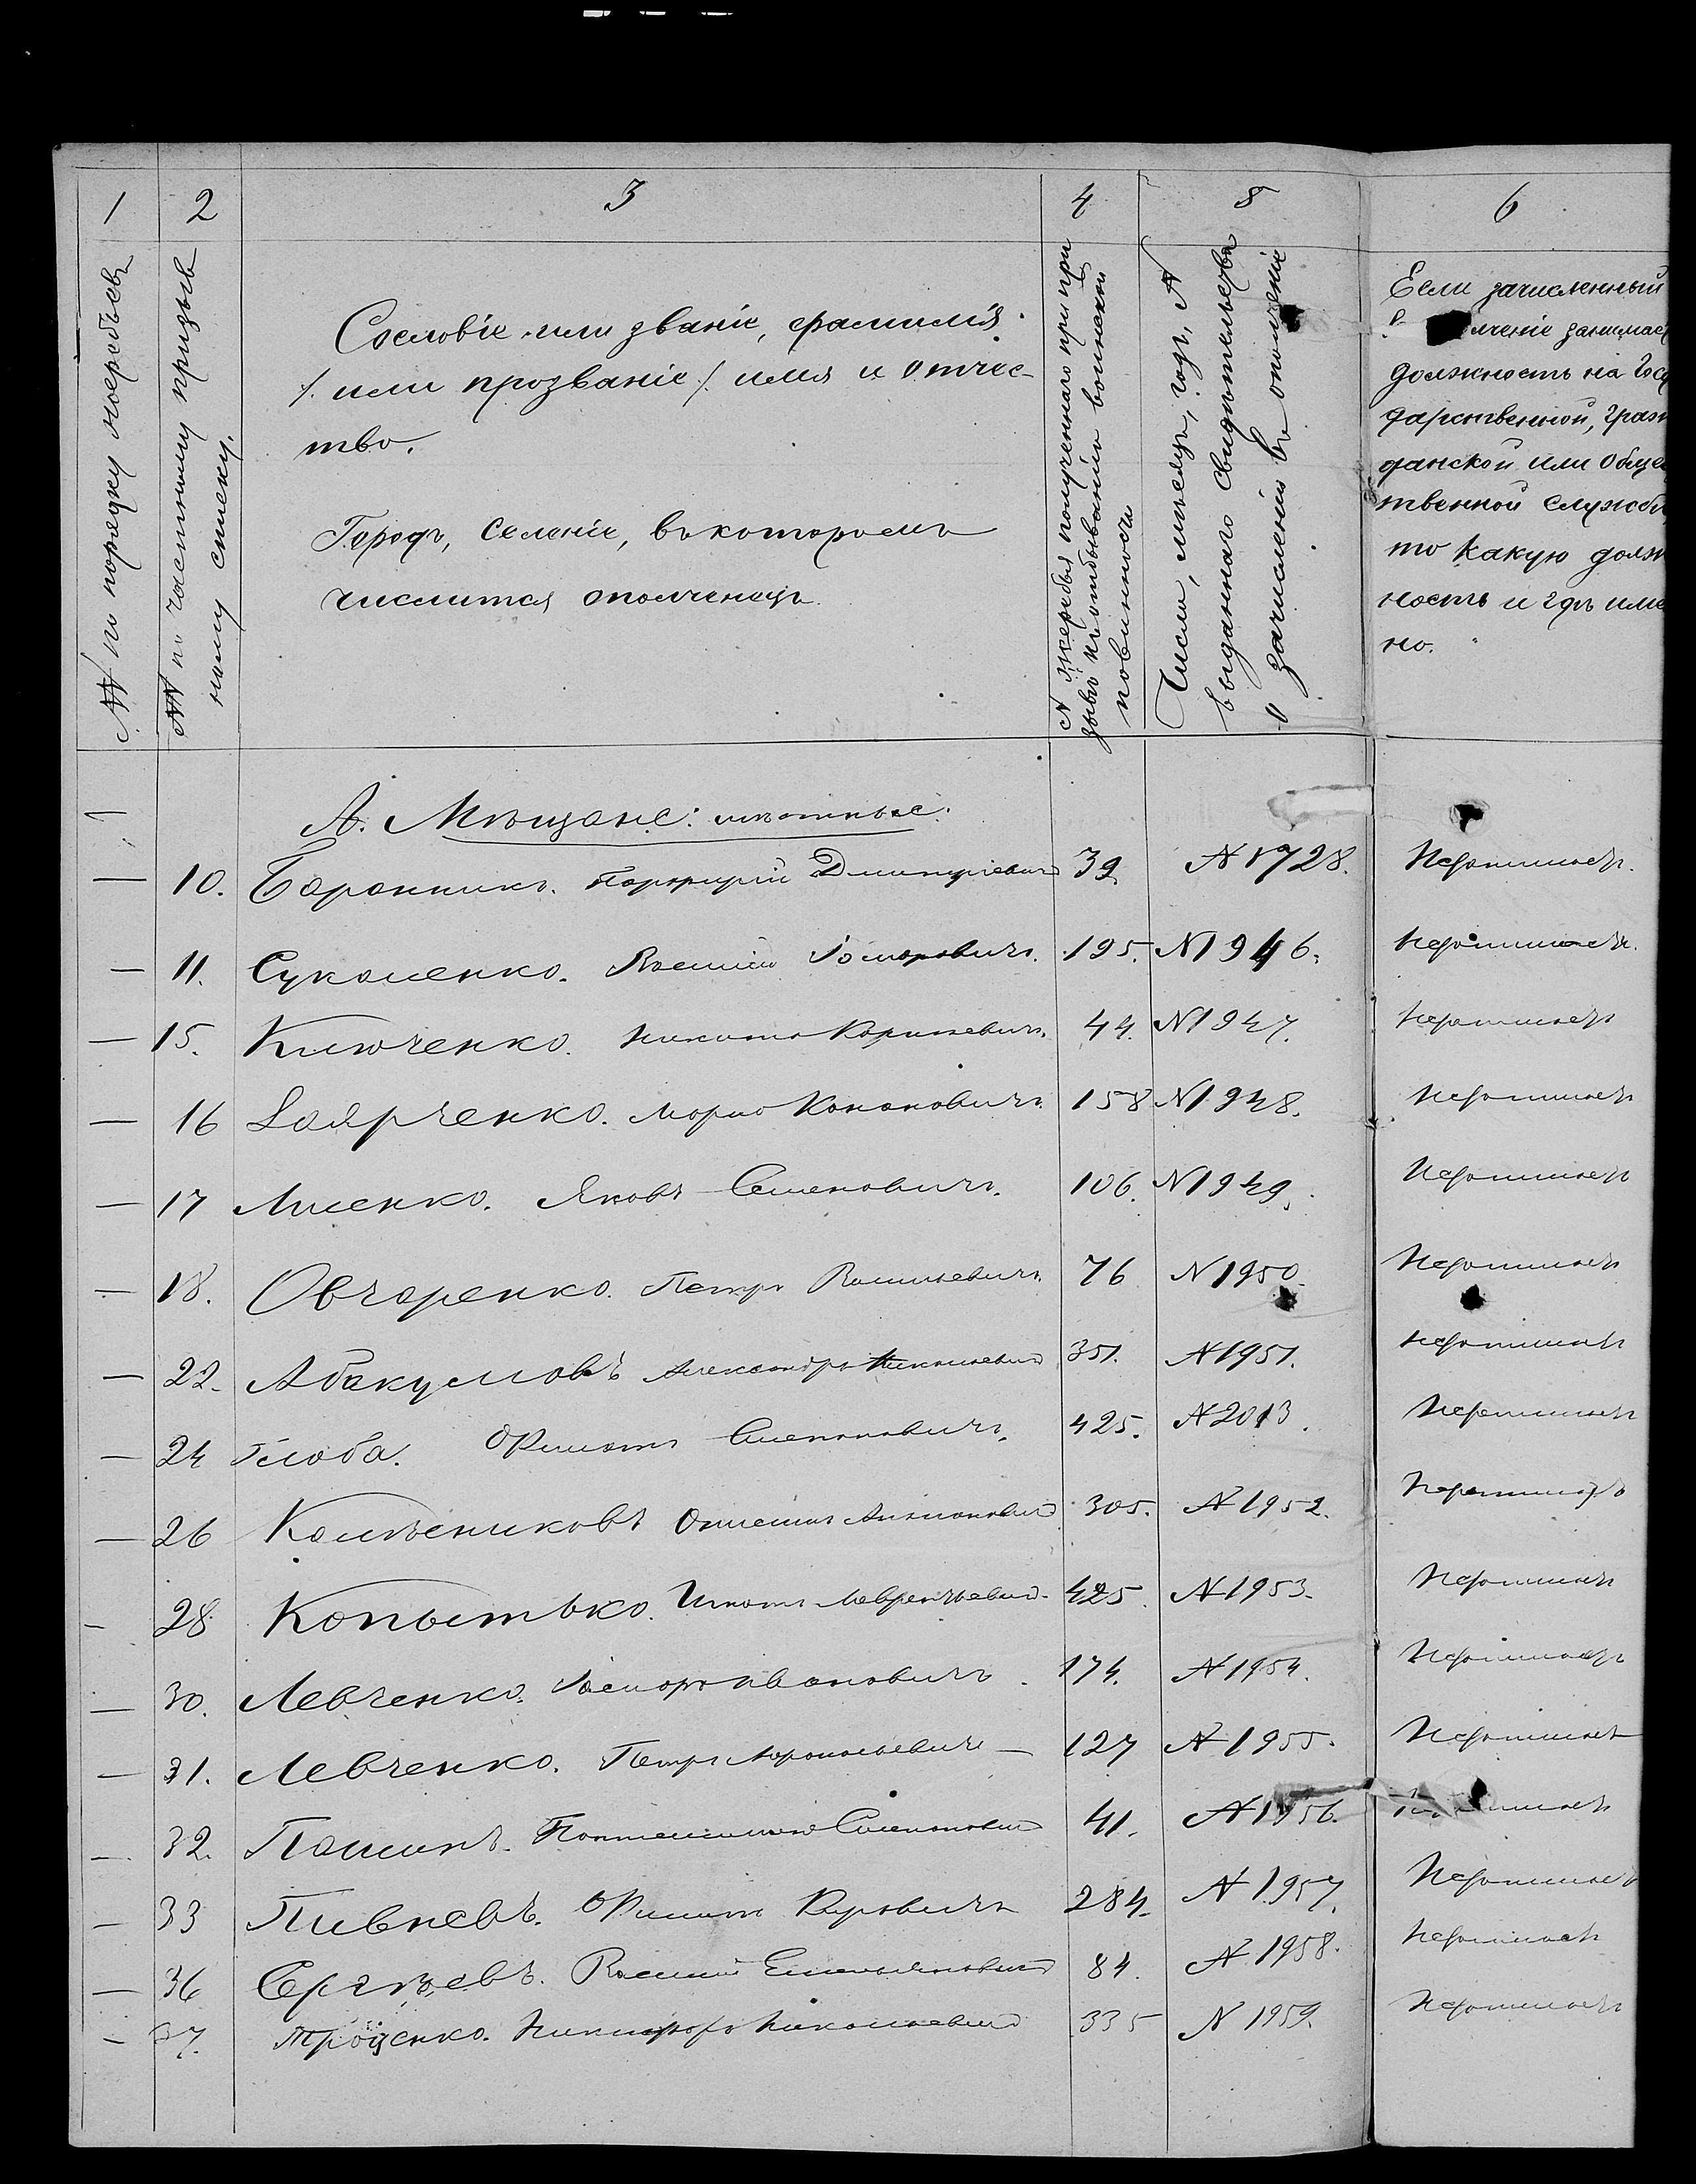 1 2 3 4 5 6
№№ по порядку жеребьевъ
№№ по частному призыв
ному списку.
Сословіе или званіе, фамилія
/. или прозваніе ./ имя и отчес-
тво.
Городъ, селеніе, въ которомъ
числится ополченецъ.
№ жеребья полученнаго при при
зывѣ къ отбыванію воинской
повинности
Число, мѣсяцъ, годъ, №
выданнаго свидѣтельства
о зачисленіи въ ополченіе
Если зачисленный
в лченіе занимае
должность на Госу
дарственной, граж
данской или Общес
твенной службѣ,
то какую долж
ность и гдѣ име
но.
А. Мѣщане:
— 10. Порфирій Дмитріевичъ 39. № 1728. Неграмотный
— 11. Сукаленко. Василій 195. № 1946. Неграмотный
— 15. Ключенко. Никита 44. № 1947. Неграмотный
— 16 Боярченко. Марко Кононовичъ 158 № 1948. Неграмотный
— 17 Лисенко. Яковъ Семеновичъ. 106. № 1949. Неграмотный
— 18. Овчаренко. Петръ Васильевичъ 76 № 1950. Неграмотный
— 22. Абакумовъ Александръ Николаевичъ 351. № 1951. Неграмотный
— 24 Глоба. Филипъ Степановичъ. 425. № 2013. Неграмотный
— 26 Колесниковъ 305. № 1952. Неграмотный
— 28 Копытько. Игнатъ Лаврентьевичъ 425. № 1953. Неграмотный
— 30. Левченко. Ивановичъ 174. № 1954. Неграмотный
— 31. Левченко. Петръ — 127 № 1955. Неграмотный
— 32. Пантелеймонъ 41. № 1956.
— 33 Пивневъ. Филипъ 284. № 1957. Неграмотный
— 36 Сергѣевъ. Василій Емельяновичъ 84. № 1958. Неграмотный
— 37. Троценко. Никифоръ Николаевичъ 335 № 1959. Неграмотный